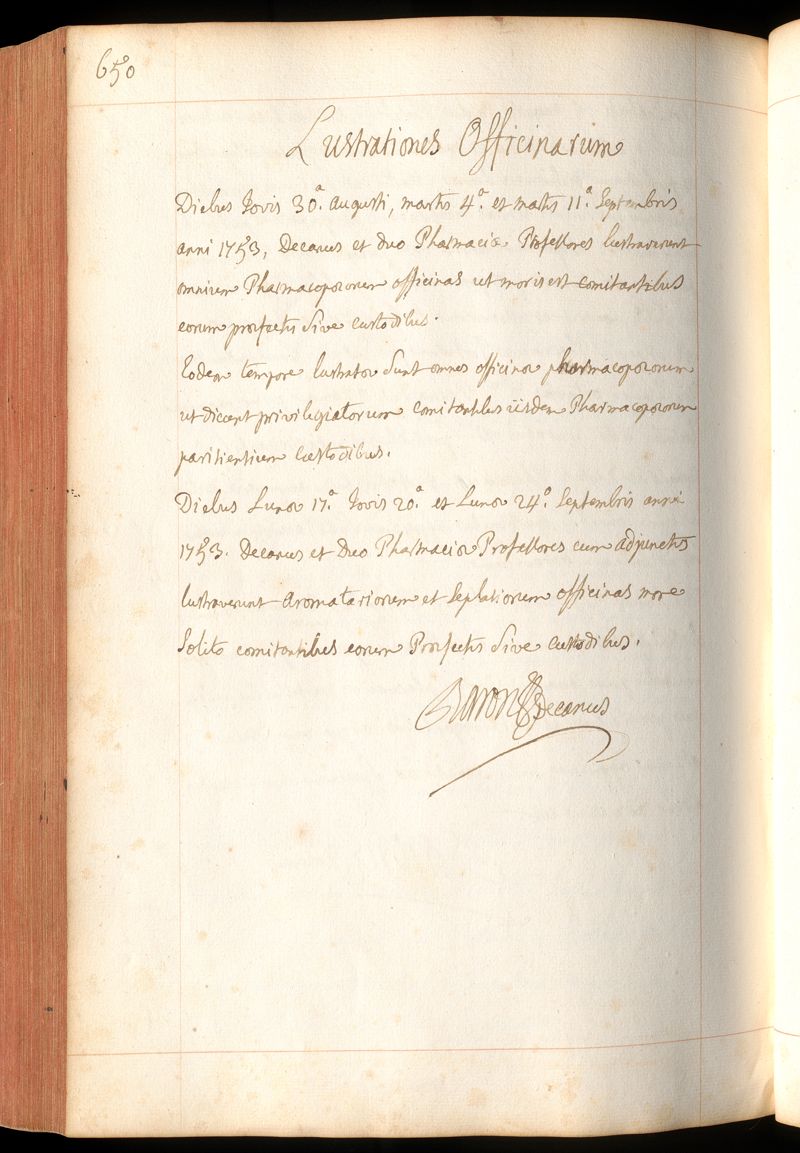 650
Lustrationes Officinarum
Diebus Jovis 30.ª augusti, martis 4.ª et martis 11.ª Septembris
anni 1753, Decanus et duo Pharmaciæ Professores lustraverunt
omnium Pharmacopœorum officinas ut moris est comitantibus
eorum præfectis sive custodibus.
Eodem tempore lustratæ sunt omnes officinæ pharmacopœorum
ut dicunt privilegiatorum comitantibus iisdem Pharmacopœorum
parisiensium custodibus.
Diebus Lunæ 17.ª Jovis 20.ª et Lunæ 24.ª Septembris anni
1753. Decanus et duo Pharmaciæ Professores cum adjunctis
lustraverunt aromatariorum et seplasiorum officinas more
solito comitantibus eorum Præfectis sive custodibus.
Baron Decanus